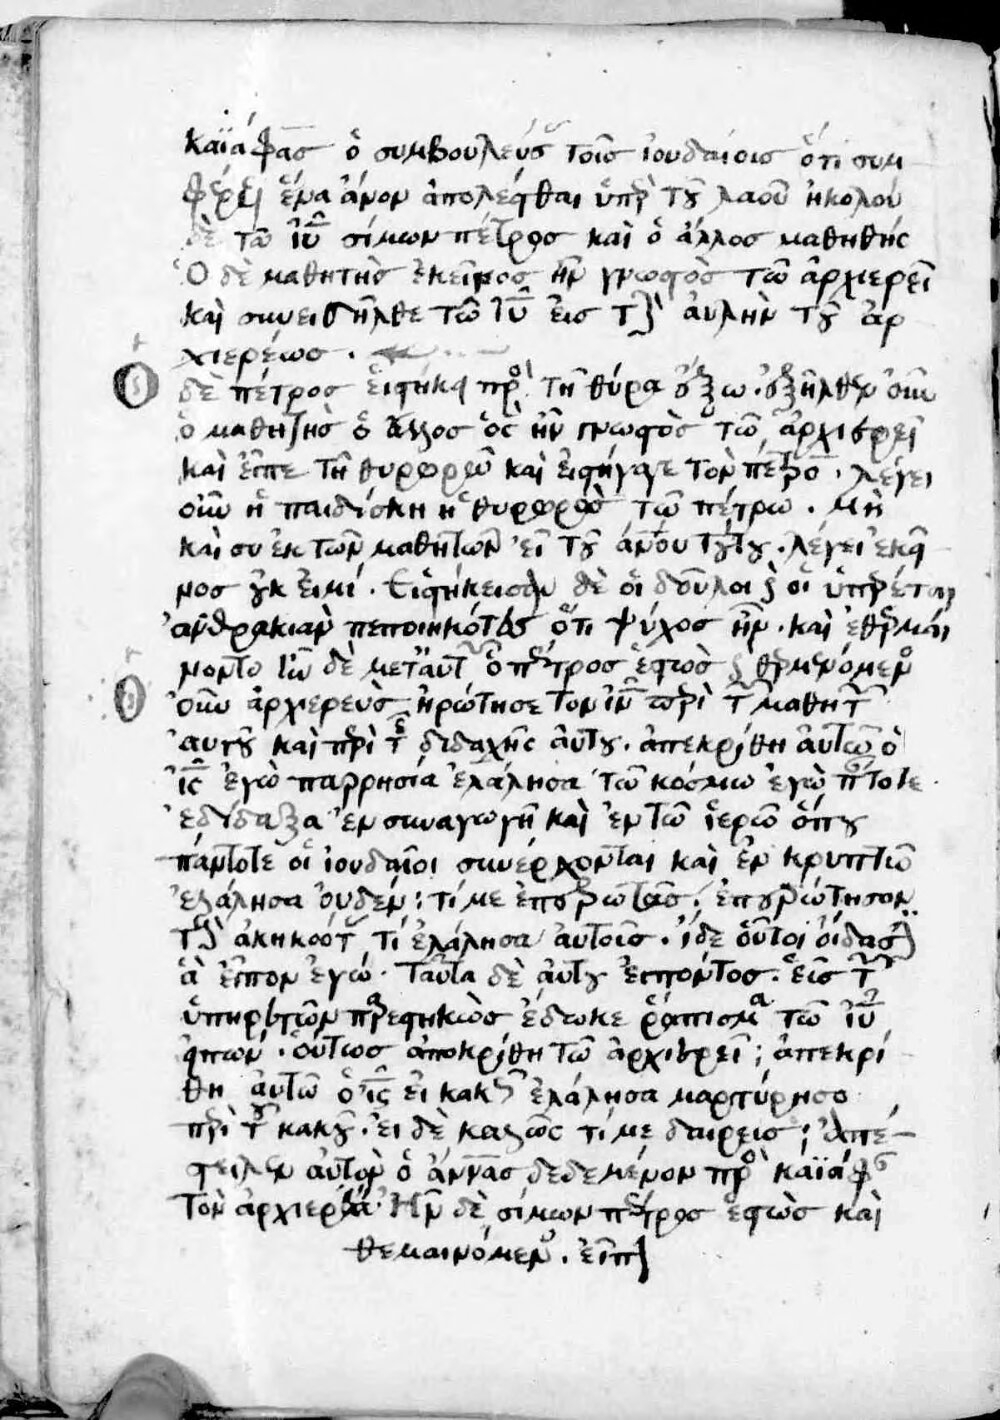 καϊάφας ὁ συμβουλεύσας τοῖς ἰουδαίοις ὅτι συμ
φέρει ἕνα ἄνον ἀπολέσθαι ὑπὲρ τοῦ λαοῦ ἠκολού
δὲ τῶ ἰῦ σίμων πέτρος καὶ ὁ ἄλλος μαθηθής
Ὁ δὲ μαθητὴς ἐκεῖνος ἦν γνωστὸς τῶ ἀρχιερεῖ
καὶ συνεισῆλθε τῶ ἰῦ εἰς τὴν αὐλὴν τοῦ ἀρ
χιερέως .
δὲ πέτρος εἱστήκει πρὸς τῆ θύρα ἔξω . ἐξῆλθεν οὖν
ὁ μαθητὴς ὁ ἄλλος ὃς ἦν γνωστὸς τῶ ἀρχιερεῖ
καὶ εἶπε τῆ θυρωρῶ καὶ εἰσήγαγε τὸν πέτρον . λέγει
οὖν ἡ παιδίσκη ἡ θυρωρὸς τῶ πέτρω . Μὴ
καὶ συ ἐκ τῶν μαθητῶν εἶ τοῦ ἀνου τούτου . λέγει ἐκεῖ
νος οὐκ εἰμί . Εἱστήκεισαν δὲ οἱ δοῦλοι καὶ οἱ ὑπηρέται
ἀνθρακιὰν πεποιηκότες ὅτι ψύχος ἦν . καὶ ἐθερμαί
νοντο ἦν δὲ μετ' αὐτῶν ὁ πέτρος ἑστὼς καὶ θερμενόμενος
οὖν ἀρχιερεὺς ἠρώτησε τὸν ἰν περὶ τῶν μαθητῶν
αυτοῦ καὶ περὶ τῆς διδαχῆς αὐτοῦ . ἀπεκρίθη αὐτῶ ὁ
ἰς ἐγὼ παρρησία ἐλάλησα τῶ κόσμω ἐγὼ πάντοτε
ἐδίδαξα ἐν συναγωγῆ καὶ ἐν τῶ ἱερῶ ὅπου
πάντοτε οἱ ἰουδαῖοι συνέρχονται καὶ ἐν κρυπτῶ
ἐλάλησα οὐδέν : τί με ἐπερωτᾶς ; ἐπερώτησον
τοὺς ἀκηκοότας τί ἐλάλησα αὐτοῖς . ἴδε οὗτοι οἴδασιν
ἃ εἶπον ἐγώ . Ταῦτα δὲ αὐτοῦ εἰπόντος . εἷς τῶν
ὑπηρετῶν παρεστηκὼς ἔδωκε ῥάπισμα τῶ ἰῦ
εἰπών . οὕτως ἀποκρίθη τῶ ἀρχιερεῖ ; ἀπεκρί
θη αὐτῶ ὁ ἰς εἰ κακῶς ἐλάλησα μαρτύρησο
περὶ τοῦ κακοῦ . εἰ δὲ καλῶς τί με δαίρεις ; Ἀπέ-
στειλεν αὐτὸν ὁ ἄννας δεδεμένον πρὸς καϊάφαν
τὸν ἀρχιερέα Ἦν δὲ σίμων πέτρος ἑστὼς καὶ
θεμαινόμενος . εἶπον